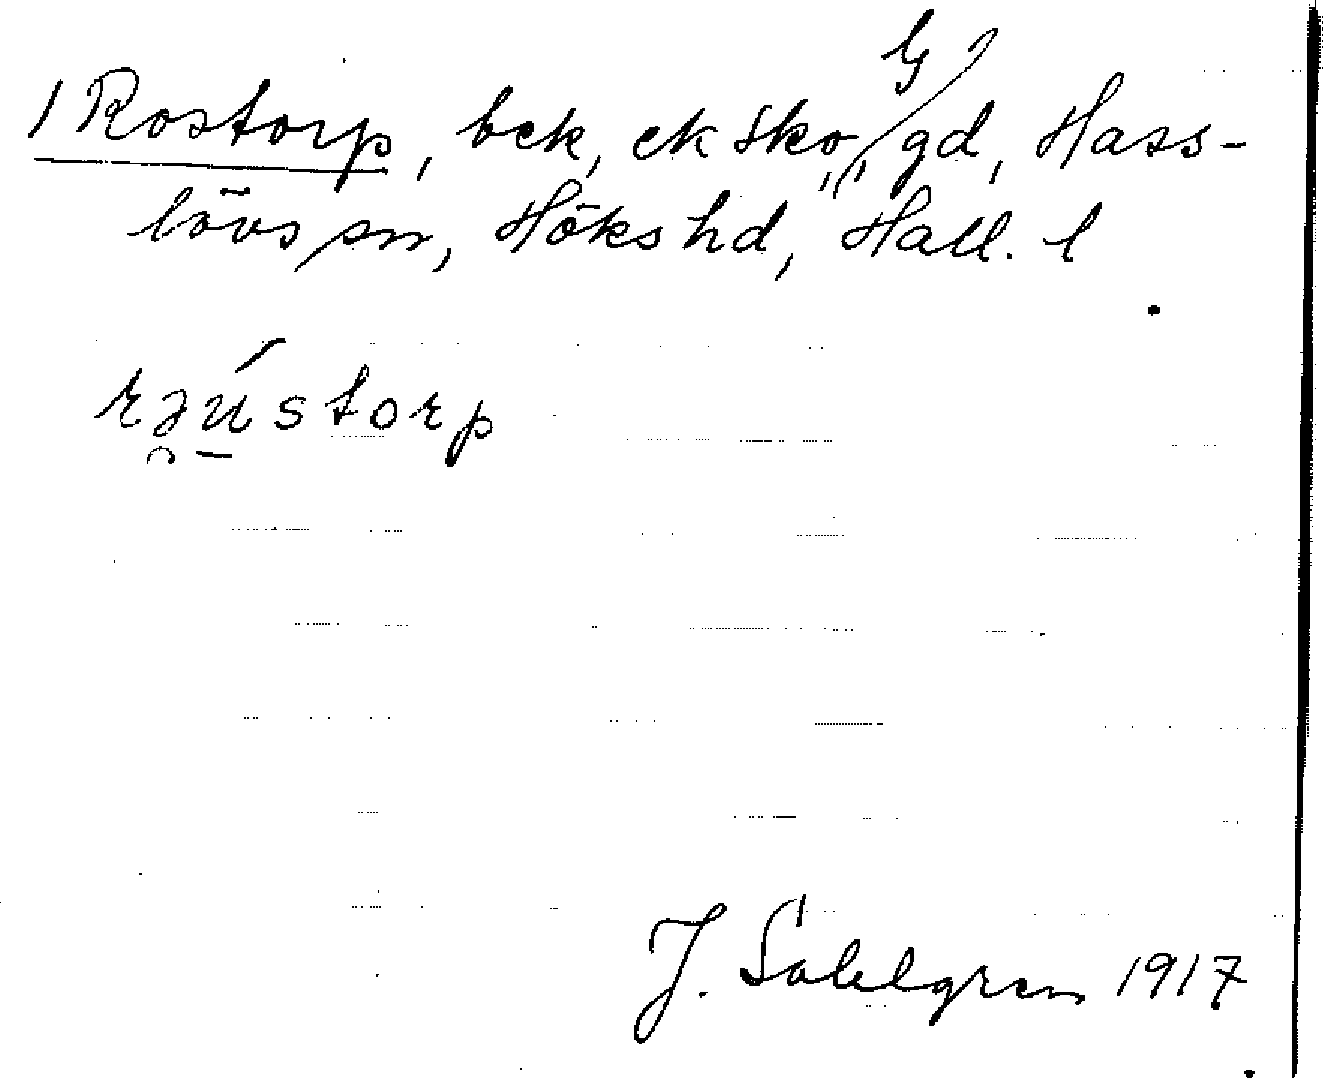 1 Rostorp, bek, ek sko, G, gd, Hass-
lövs sn, Höks hd, Hall. l
rəústorp
J. Sahlgren 1917